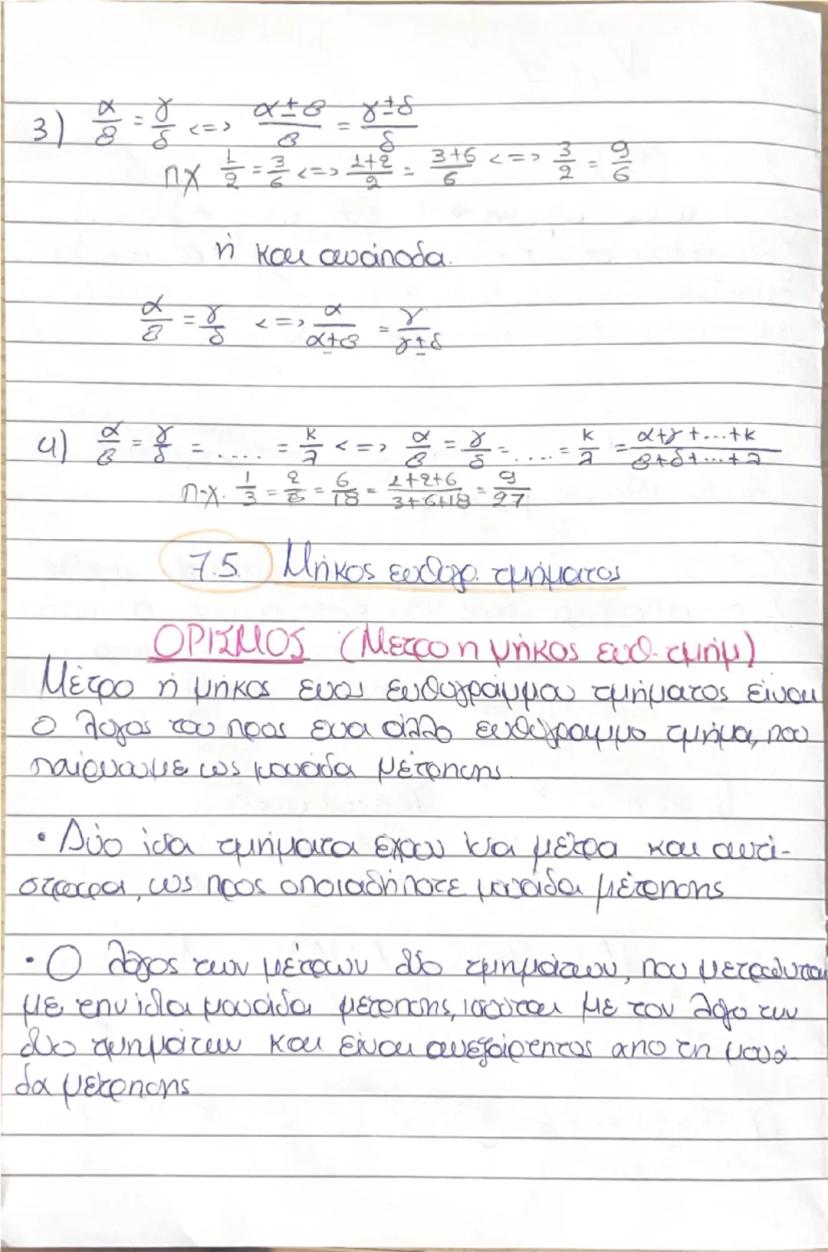 3) α/β = γ/δ <=> α±β/β = γ±δ/δ
πχ 1/2 = 3/6 <=> 1+2/2 = 3+6/6 <=> 3/2 = 9/6
ή και ανάποδα.
α/β = γ/δ <=> α/α±β = γ/γ±δ
4) α/β = γ/δ = .... = κ/λ <=> α/β = γ/δ = .... = κ/λ = α+γ+...+κ/β+δ+...+λ
π.χ. 1/3 = 2/6 = 6/18 = 1+2+6/3+6+18 = 9/27
7.5. Μήκος ευθυγρ. τμήματος
ΟΡΙΣΜΟΣ (Μέτρο ή μήκος ευθ. τμήμ)
Μέτρο ή μήκος ενος ευθυγράμμου τμήματος είναι
ο λόγος του προς ενα άλλο ευθύγραμμο τμήμα, που
παίρνωμε ως μονάδα μέτρησης.
• Δύο ίσα τμήματα έχουν ίσα μέτρα και αντί-
στροφα, ως προς οποιαδήποτε μονάδα μέτρησης
• Ο λόγος των μέτρων δύο τμημάτων, που μετρούνται
με την ίδια μονάδα μέτρησης, ισούται με τον λόγο των
δύο τμημάτων και είναι ανεξάρτητος απο τη μονά-
δα μέτρησης